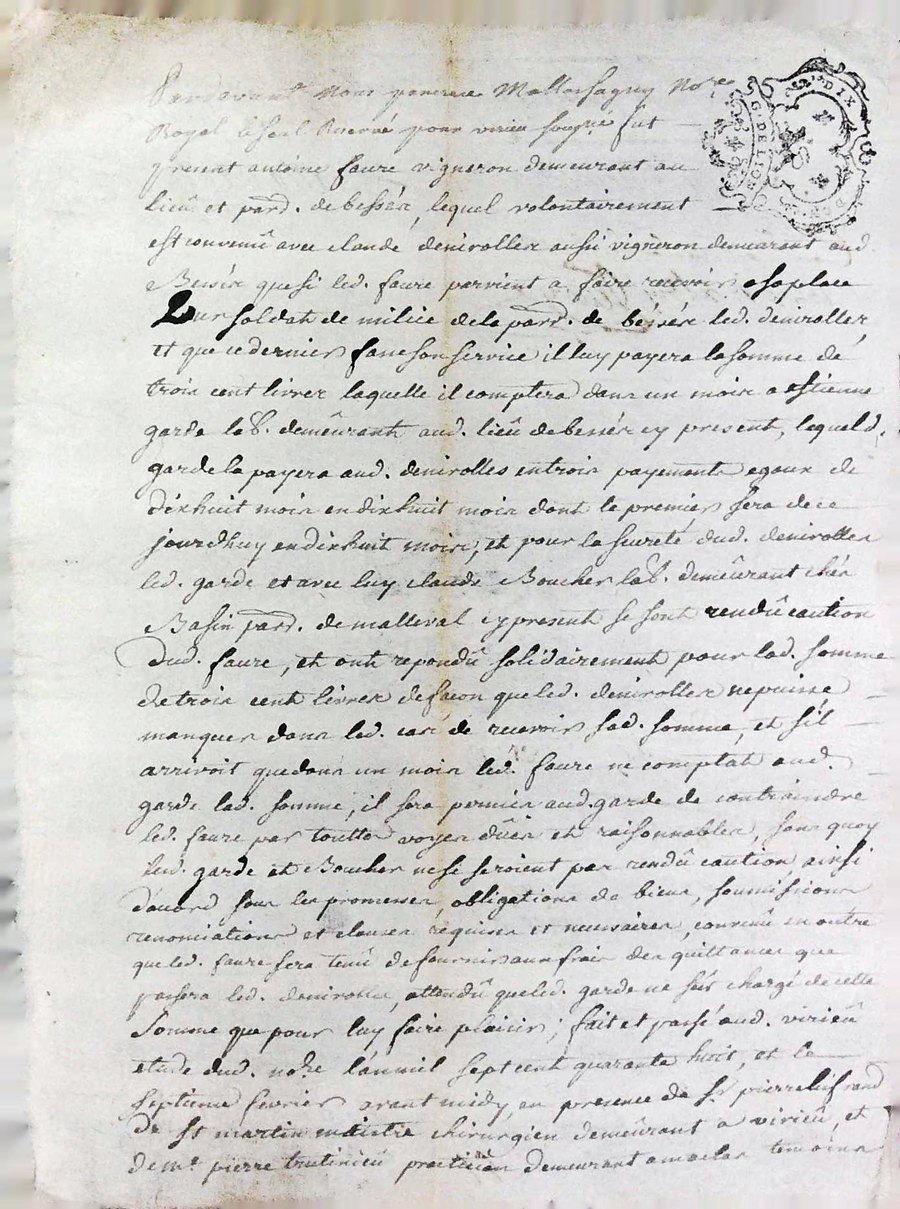 Pardevant Nous Mallassagny No.re
Royal pour virieu fut
present antoine faure vigneron demeurant au
lieû et parr. de bessée, lequel volontairement
est convenû avec claude denirolles aussi vigneron demeurant aud
Bessée que si led. faure parvient a faire recevoir a sa place
pour soldat de milice de la parr. de bessée led. denirolles,
et que ce dernier fasse son service il luy payera la somme de
trois cent livres laquelle il comptera dans un mois a estienne
garde lab. demeûrant aud. lieû de bessée cy present, lequel d.
garde la payera aud. denirolles en trois payements egaux de
dixhuit mois en dixhuit mois dont le premier sera de ce
jourdhuy en dixhuit mois, et pour la sureté dud. denirolles
led. garde et avec luy claude Boucher lab. demeûrant chés
Basin parr. de malleval cy present se sont rendû caution
dud. faure, et ont repondû solidairement pour lad. somme
de trois cent livres de facon que led. denirolles ne puisse
manquer dans led. cas de recevoir sad. somme, et s'il
arrivoit que dans un mois led. faure ne comptat aud.
garde lad. somme, il sera permis aud. garde de contraindre
led. faure par touttes voyes dûes et raisonnables, sans quoy
led. garde et Boucher ne se seroient pas rendû caution, ainsi
d'acord sous les promesses, obligations de biens, soumissions
renonciations et clauses requises et necessaires, convenû en outre
que led. faure sera tenû de fournir aux frais des quittances que
passera led. denirolles, attendû que led. garde ne s'est chargé de cette
somme que pour luy faire plaisir; fait et passé aud. virieû
etude dud. no.re l'an mil sept cent quarante huit, et le
septieme fevrier avant midy, en presence de s.r pierre
de st martin maitre chirurgien demeûrant a virieû, et
de m.e pierre trutinieû practicien demeurant a maclas temoins
G. DE LYON
DIX